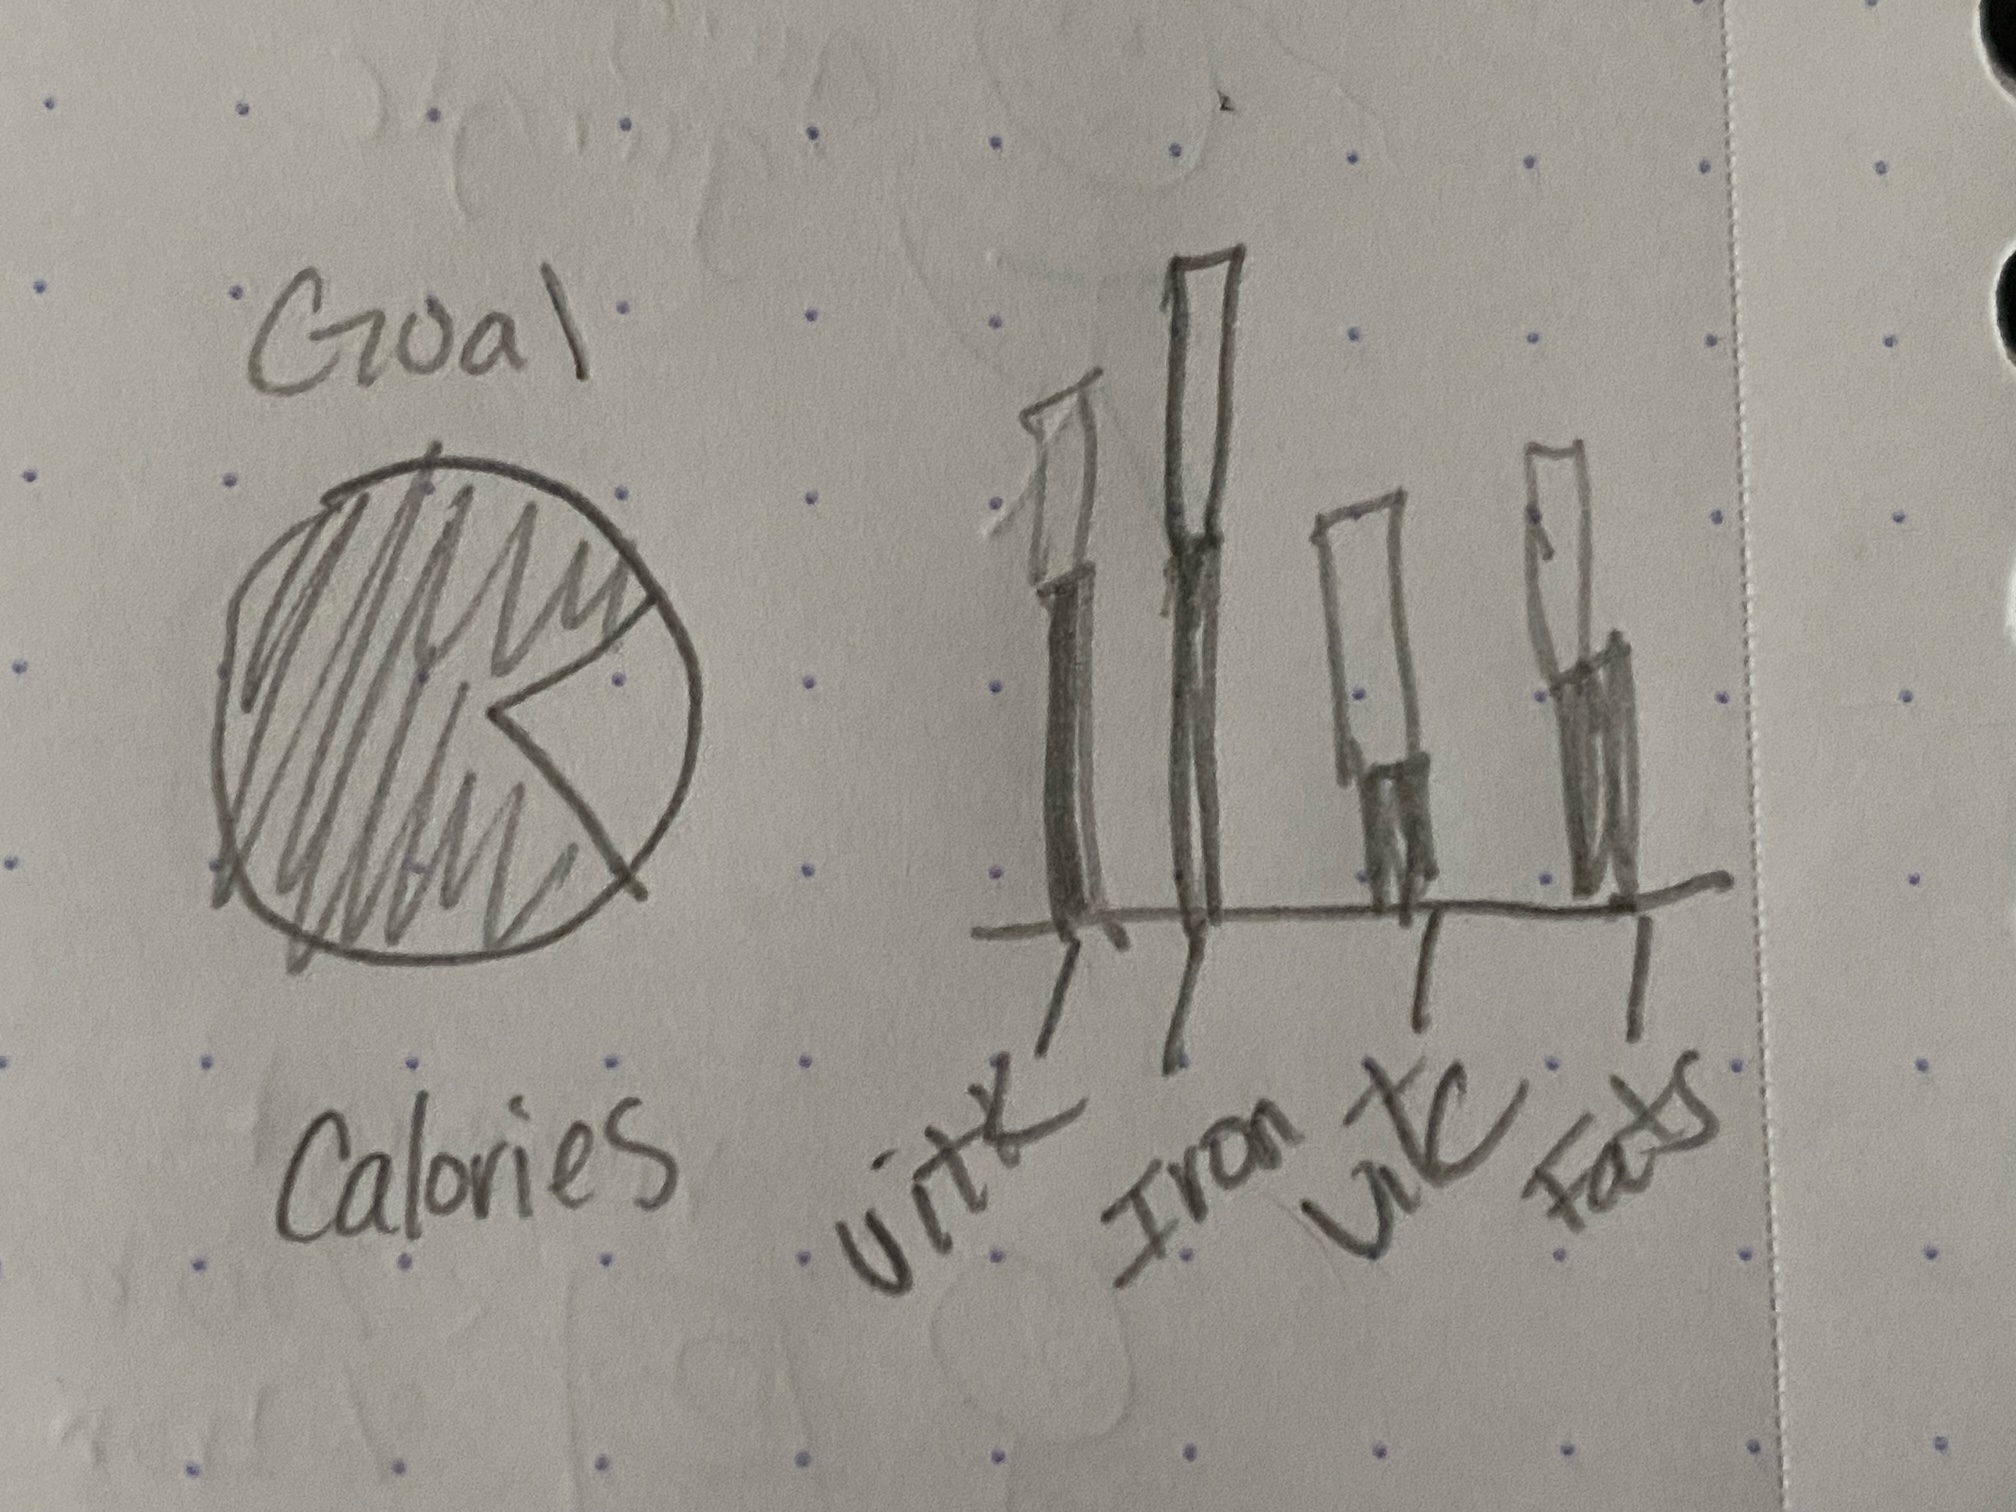 Goal
Calories
VitK
Iron
VitC
Fats